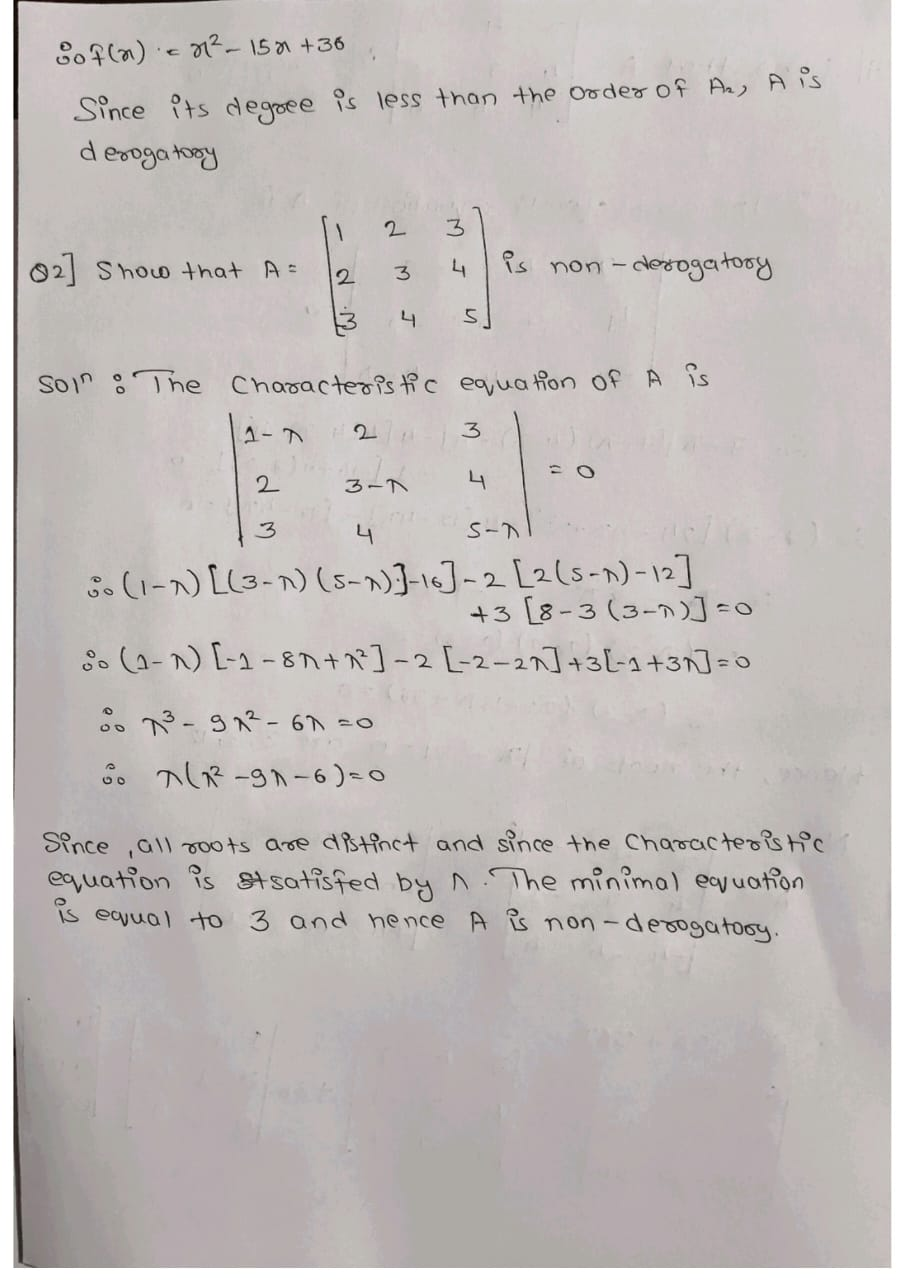 ∴ f(x) = x² - 15x + 36
Since its degree is less than the order of A₂, A is
derogatory
Q2] Show that A = [1 2 3
2 3 4
3 4 5] is non-derogatory
Solⁿ : The Characteristic equation of A is
|1-λ 2 3
2 3-λ 4
3 4 5-λ| = 0
∴ (1-λ) [(3-λ) (5-λ)]-16] - 2 [2(5-λ)-12]
+3 [8-3(3-λ)] = 0
∴ (1-λ) [-1-8λ+λ²] - 2 [-2-2λ] +3[-1+3λ] = 0
∴ λ³ - 9λ² - 6λ = 0
∴ λ(λ² -9λ-6) = 0
Since, all roots are distinct and since the Characteristic
equation is satisfed by λ. The minimal equation
is equal to 3 and hence A is non-derogatory.